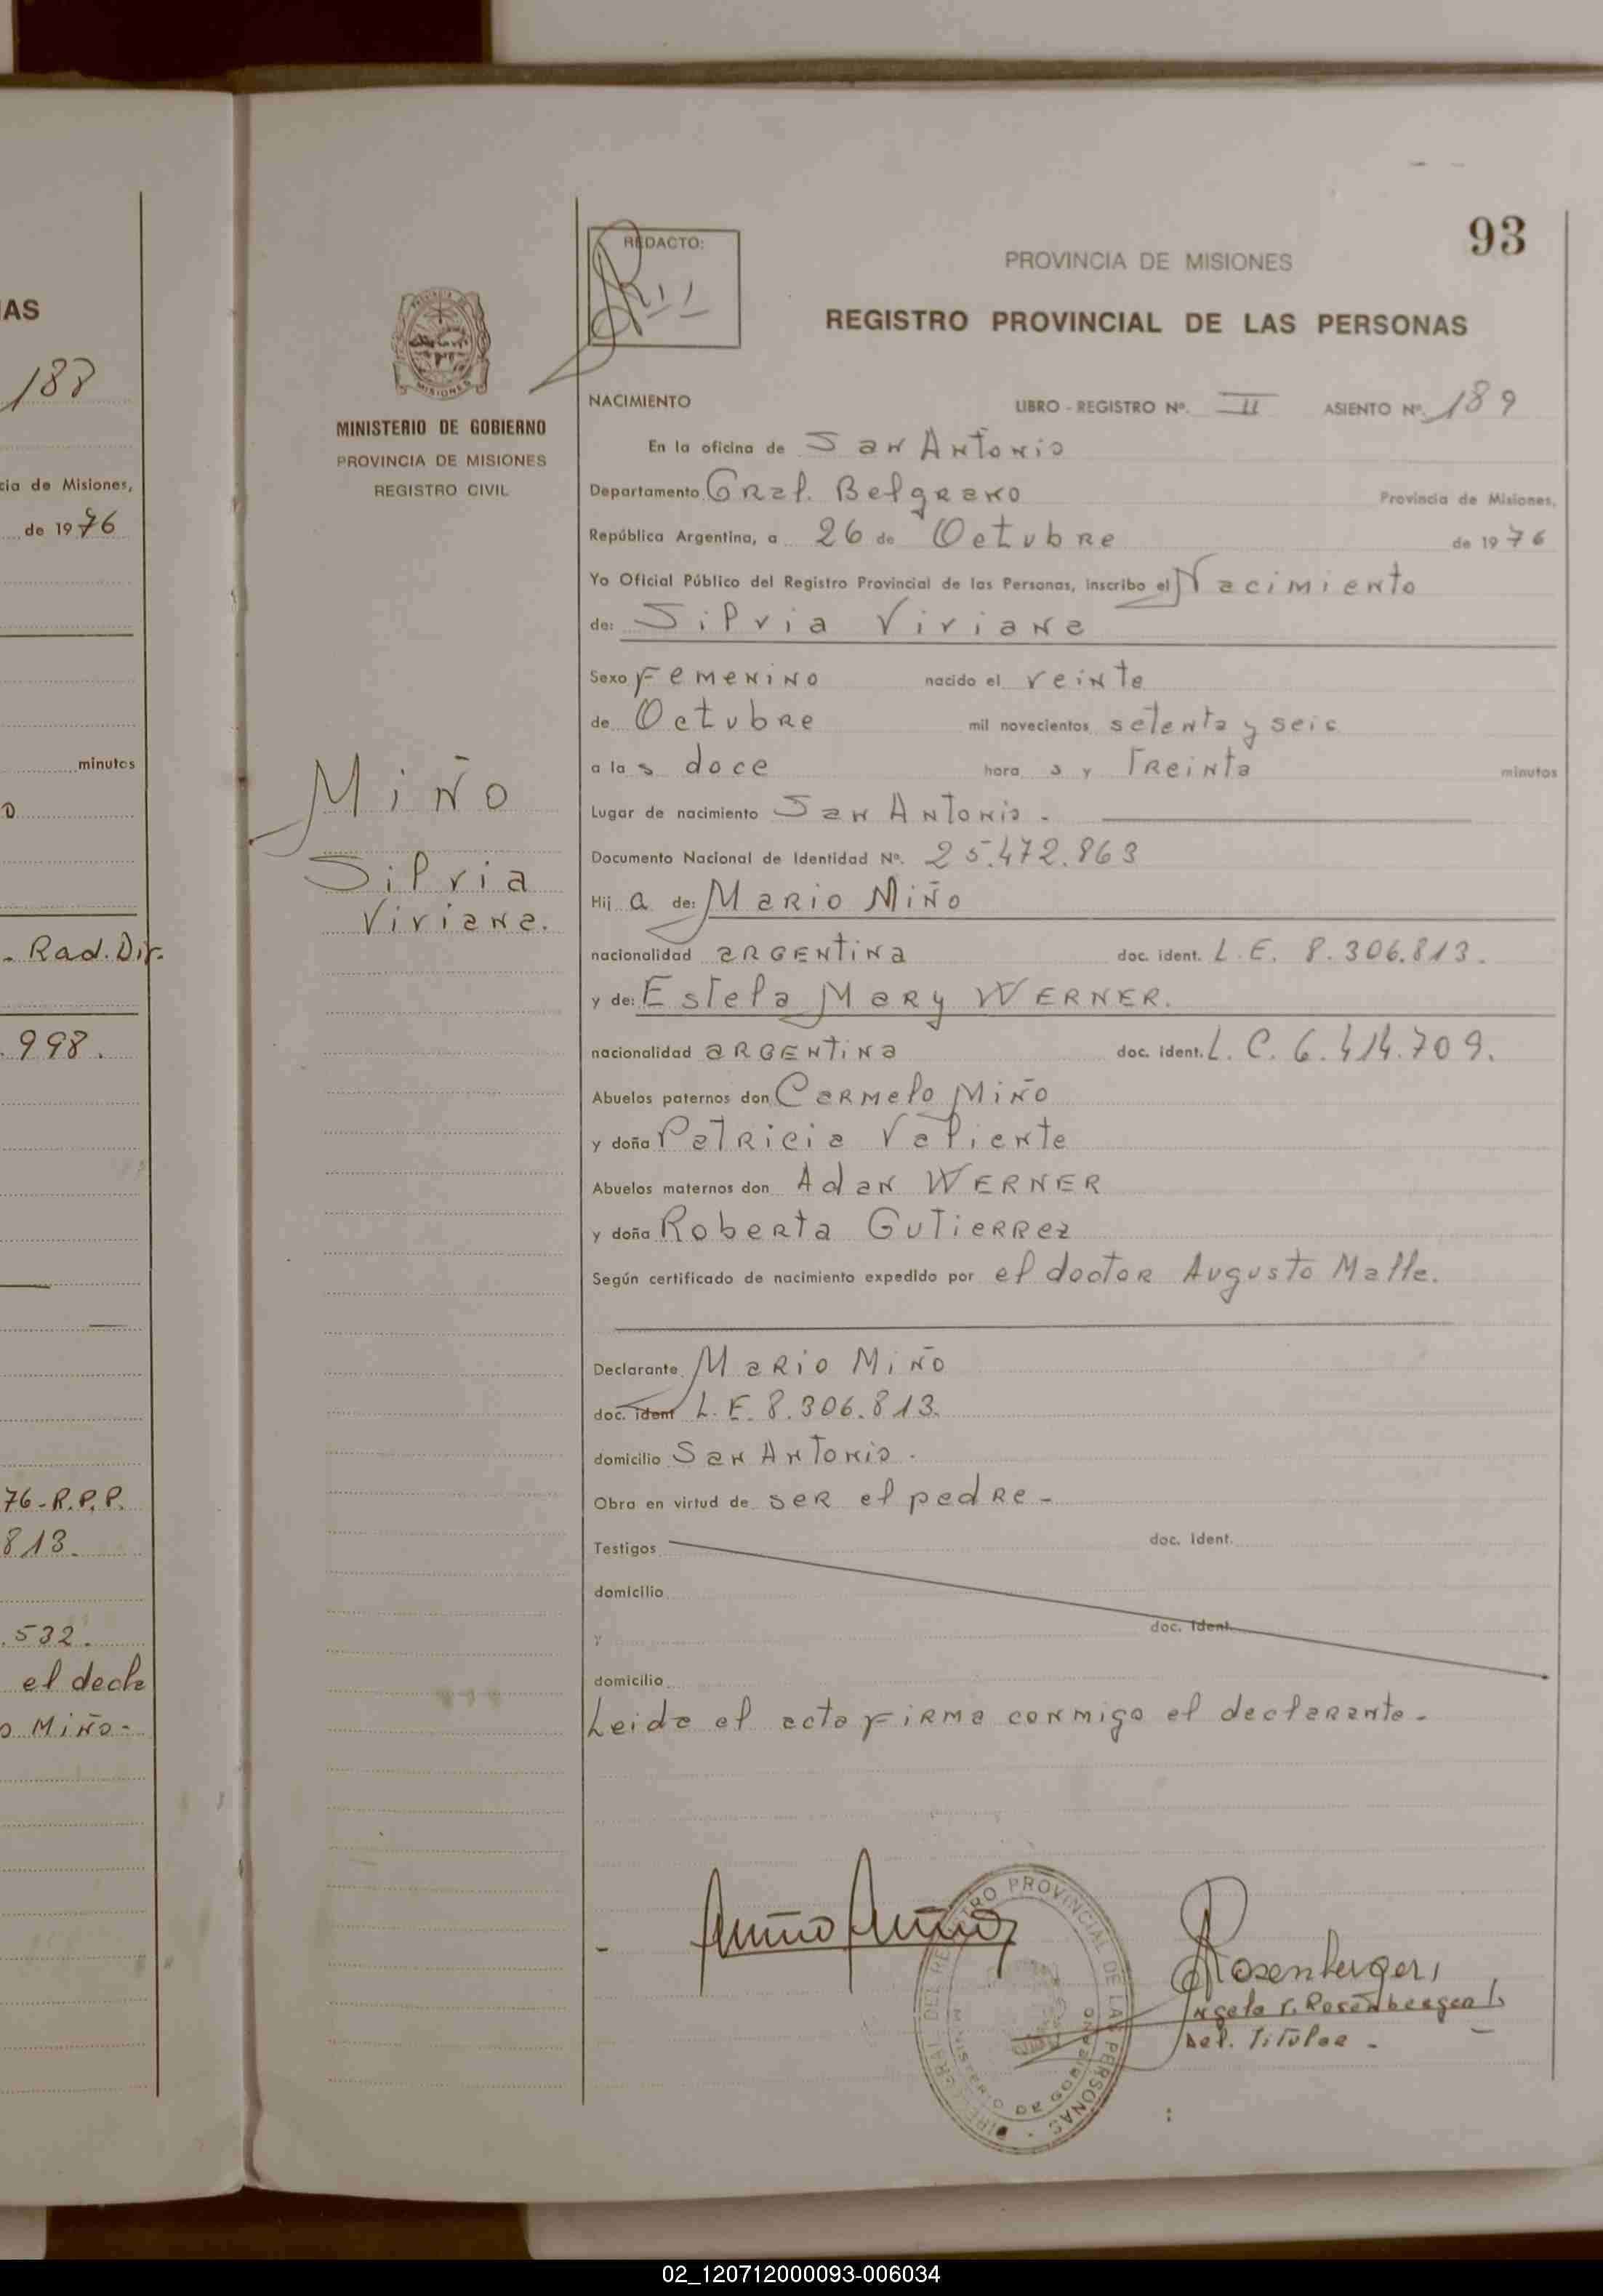 AS
188
cia de Misiones,
de 1976
minutos
o
- Rad. Dir.
998.
76-R.P.P.
813.
.532.
el decla
o Miño-
MINISTERIO DE GOBIERNO
PROVINCIA DE MISIONES
REGISTRO CIVIL
Miño
Silvia
Viviana.
REDACTO:
93
PROVINCIA DE MISIONES
REGISTRO PROVINCIAL DE LAS PERSONAS
NACIMIENTO LIBRO - REGISTRO Nº. II ASIENTO Nº. 189
En la oficina de San Antonio
Departamento Gral. Belgrano Provincia de Misiones,
República Argentina, a 26 de Octubre de 1976
Yo Oficial Público del Registro Provincial de las Personas, inscribo el Nacimiento
de: Silvia Viviana
Sexo Femenino nacido el veinte
de Octubre mil novecientos setenta y seis
a las doce horas y Treinta minutos
Lugar de nacimiento San Antonio.
Documento Nacional de Identidad Nº. 25.472.863
Hija de: Mario Miño
nacionalidad argentina doc. ident. L.E. 8.306.813.
y de: Estela Mary WERNER.
nacionalidad argentina doc. ident. L.C. 6.414.709.
Abuelos paternos don Carmelo Miño
y doña Patricia Valiente
Abuelos maternos don Adan WERNER
y doña Roberta Gutierrez
Según certificado de nacimiento expedido por el doctor Augusto Matte.
Declarante Mario Miño
doc. ident L.E. 8.306.813.
domicilio San Antonio.
Obra en virtud de ser el padre-
Testigos doc. ident.
domicilio
y doc. ident.
domicilio
Leida el acta firma conmigo el declarante-
Rosenberger
Angela r. Rosenberger
Del. Titular -
DIREC. GRAL. DEL REGISTRO PROVINCIAL DE LAS PERSONAS
MINISTERIO DE GOBIERNO
02_120712000093-006034